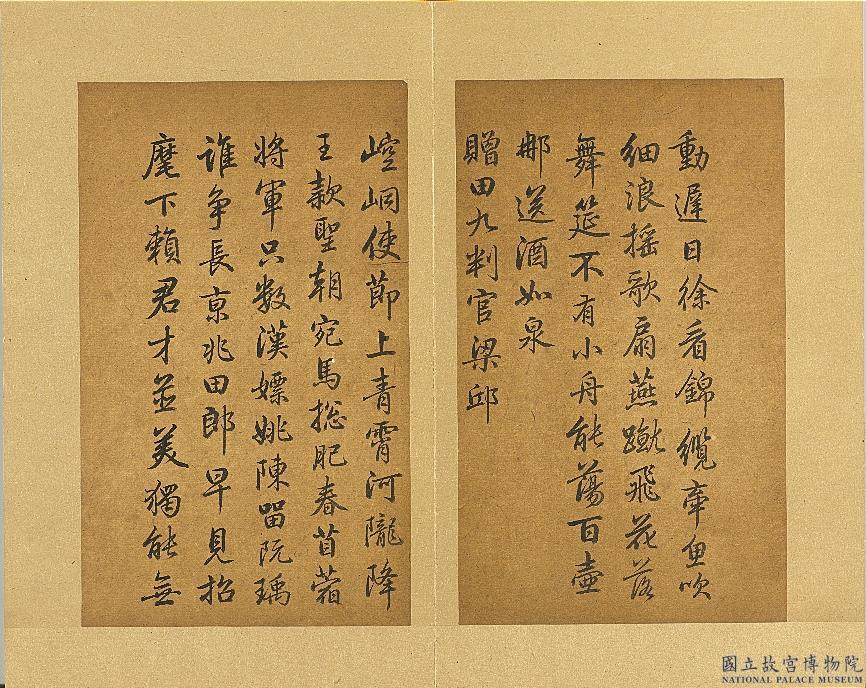 動遲日徐看錦纜牽魚吹
細浪搖歌扇燕蹴飛花落
舞筵不有小舟能蕩百壺
那送酒如泉
贈田九判官梁邱
崆峒使節上青霄河隴降
王款聖朝宛馬總肥春苜蓿
將軍只數漢嫖姚陳留阮瑀
誰爭長京兆田郎早見招
麾下賴君才並美獨能無
國立故宮博物院
NATIONAL PALACE MUSEUM